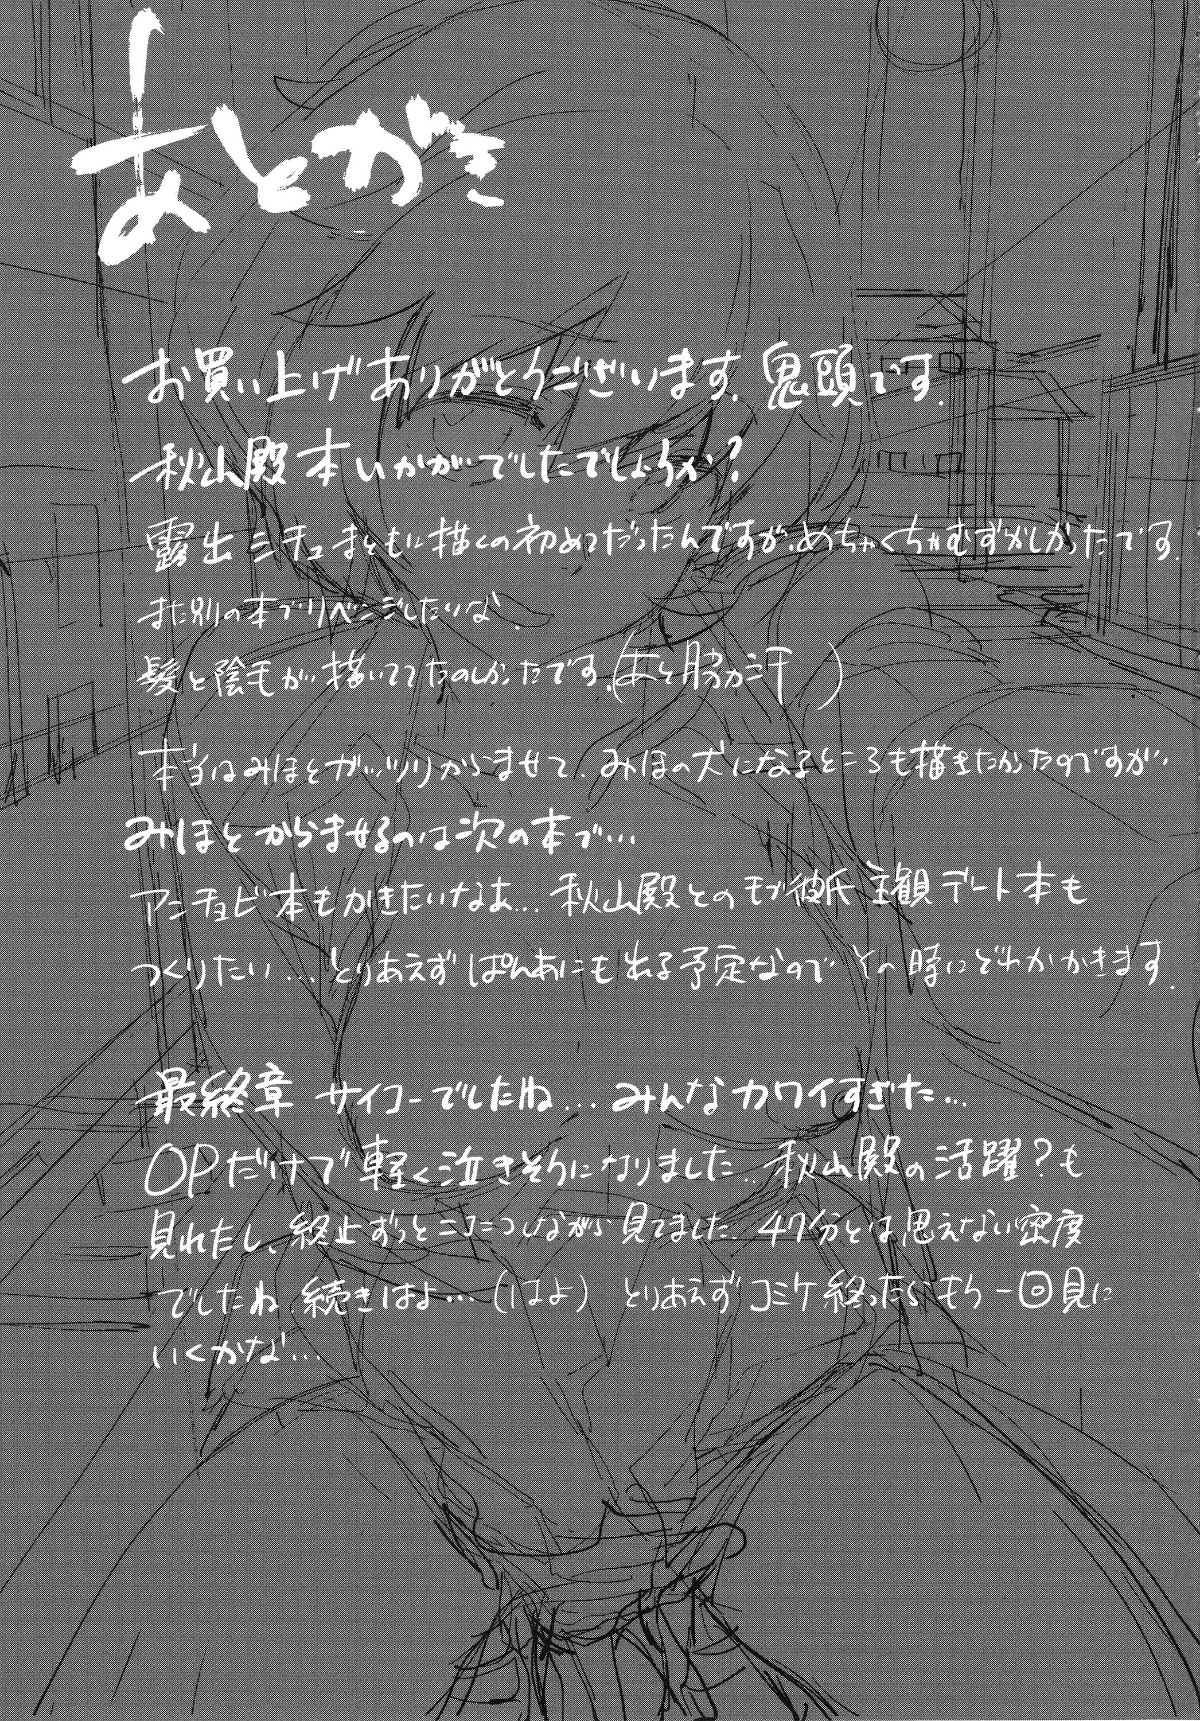 あとがき
お買い上げありがとうございます。鬼頭です。
秋山殿本いかがでしたでしょうか?
露出シチュまともに描くの初めてだったんですが、めちゃくちゃむずかしかったです。
また別の本でリベンジしたいな。
髪と陰毛が描いててたのしかったです。(あと脇汗)
本当はみほとガッツリからませて、みほの犬になるところも描きたかったのですが、
みほとからませるのは次の本で…
アンチョビ本もかきたいなぁ… 秋山殿とのモブ彼氏主観デート本も
つくりたい… とりあえずぱんあにも出る予定なので その時にどれかかきます。
最終章 サイコーでしたね… みんなカワイすぎた…
OPだけで軽く泣きそうになりました。秋山殿の活躍?も
見れたし、終止ずっとニコニコしながら見てました。47分とは思えない密度
でしたね。続きはよ…(はよ) とりあえずコミケ終ったらもう一回見に
いくかな…